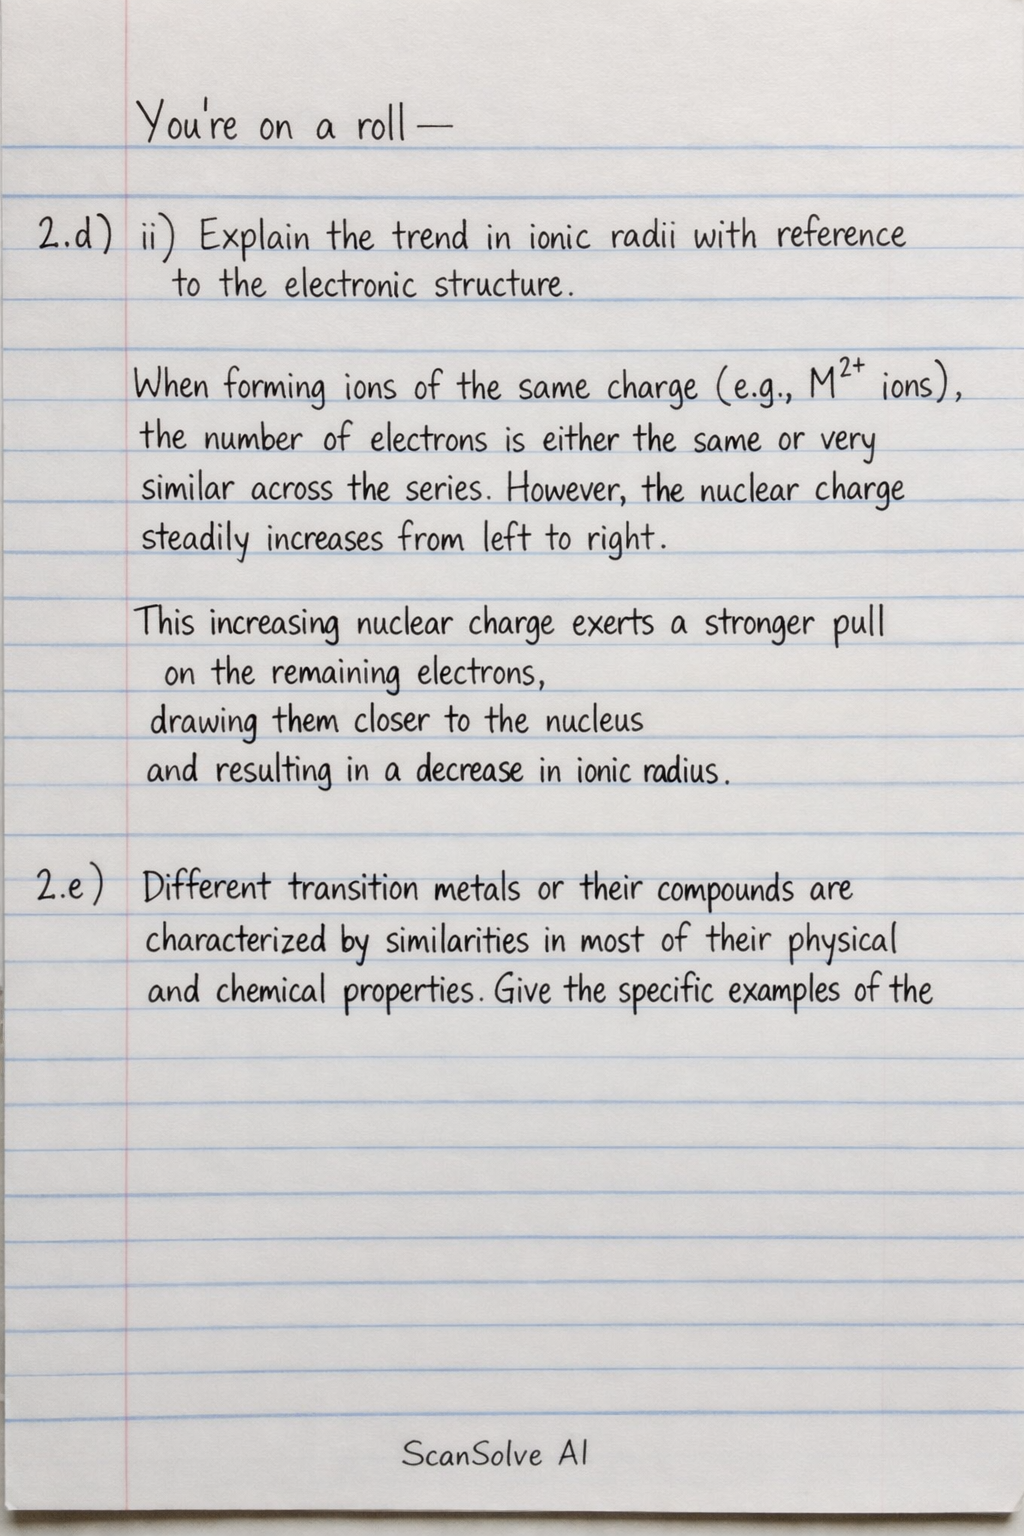 You're on a roll —
2.d) ii) Explain the trend in ionic radii with reference
to the electronic structure.
When forming ions of the same charge (e.g., M²⁺ ions),
the number of electrons is either the same or very
similar across the series. However, the nuclear charge
steadily increases from left to right.
This increasing nuclear charge exerts a stronger pull
on the remaining electrons,
drawing them closer to the nucleus
and resulting in a decrease in ionic radius.
2.e) Different transition metals or their compounds are
characterized by similarities in most of their physical
and chemical properties. Give the specific examples of the
ScanSolve AI